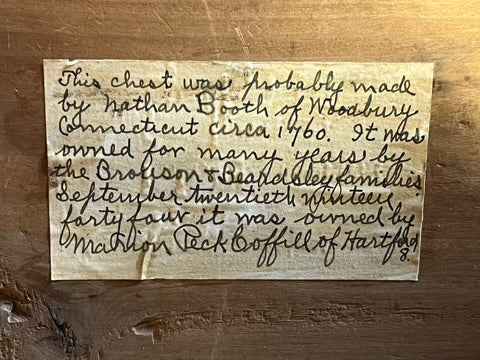 This chest was probably made
by Nathan Booth of Woodbury
Connecticut circa 1760. It was
owned for many years by
the Bronson & Beardsley families.
September twentieth nineteen
forty four it was owned by
Marion Peck Coffill of Hartford
8.